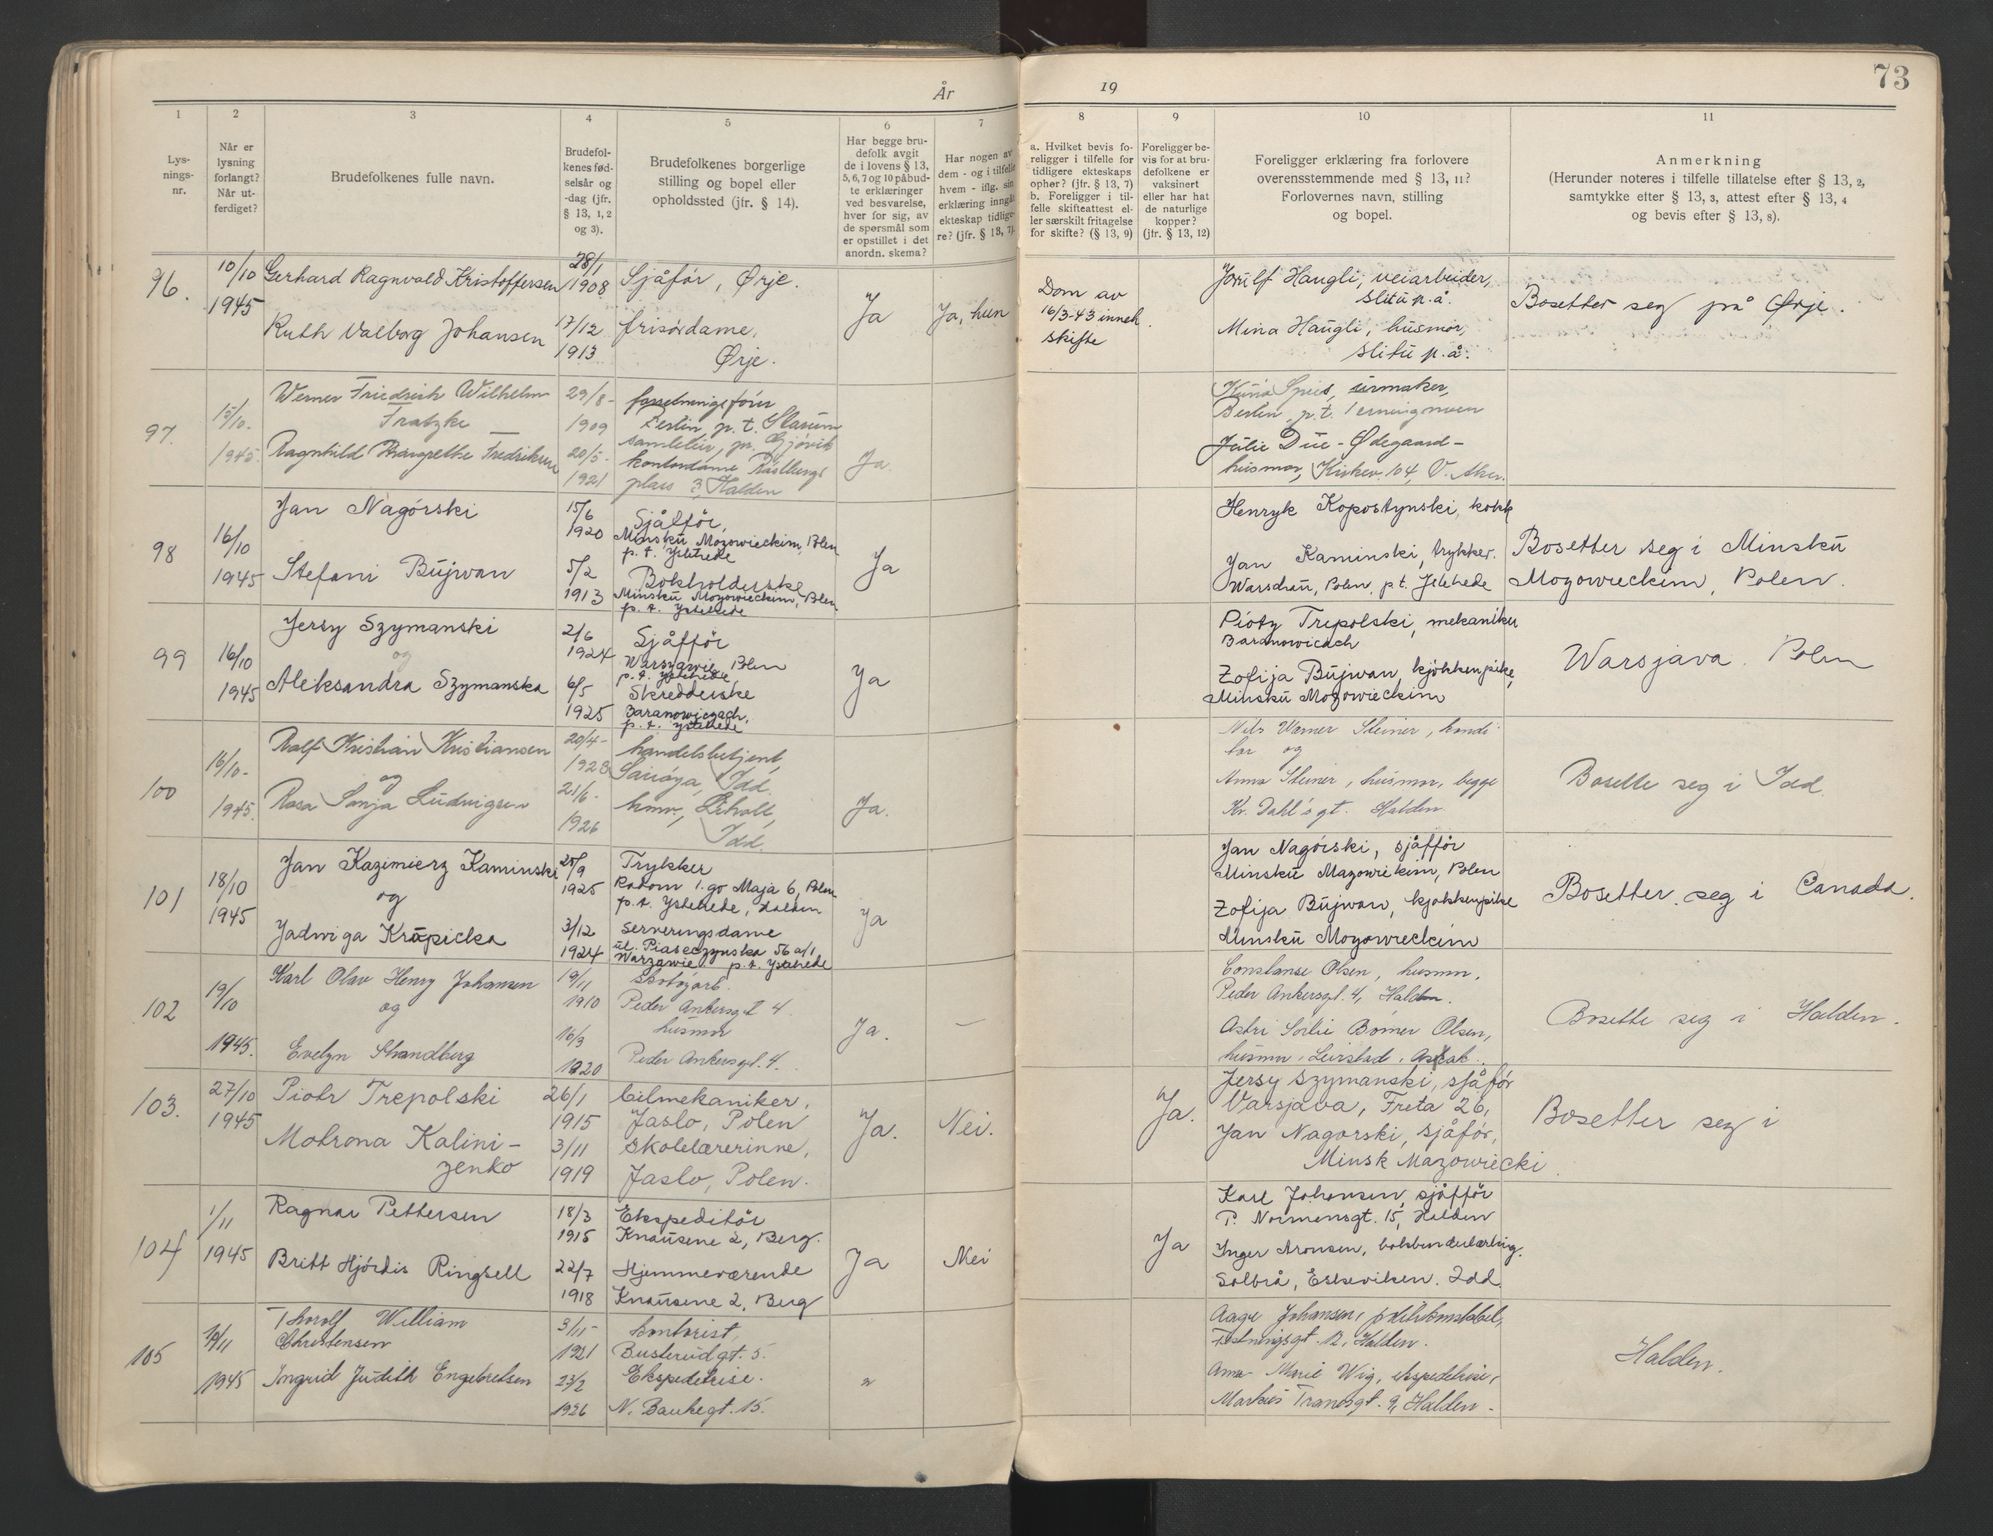 År
19
73
1
2
3
4
5
6
7
8
9
10
11
Lys-
nings-
nr.
Når er
lysning
forlangt?
Når ut-
ferdiget?
Brudefolkenes fulle navn.
Brudefol-
kenes fød-
selsår og
-dag (jfr.
§ 13, 1, 2
og 3).
Brudefolkenes borgerlige
stilling og bopel eller
opholdssted (jtr. § 14).
Har begge bru-
defolk avgit
de i lovens § 13,
5, 6, 7 og 10 påbud-
te erklæringer
ved besvarelse,
hver for sig, av
de spørsmål som
er opstillet i det
anordn. skema?
Har nogen av
dem - og i tilfelle
hvem - iflg. sin
erklæring inngått
ekteskap tidlige-
re? (jfr. § 13, 7).
a. Hvilket bevis fo-
religger i tilfelle for
tidligere ekteskaps
ophør? (jfr. § 13, 7)
b. Foreligger i til-
felle skifteattest el-
ler særskilt fritagelse
for skifte? (§ 13, 9)
Foreligger be-
vis for at bru-
defolkene er
vaksinert
eller har hat
de naturlige
kopper?
(jfr. § 13, 12)
Foreligger erklæring fra forlovere
overensstemmende med § 13, 11?
Forlovernes navn, stilling
og bopel.
Anmerkning
(Herunder noteres i tilfelle tillatelse efter § 13, 2,
samtykke efter § 13, 3, attest efter § 13, 4
og bevis efter § 13, 8).
96.
10/10
1945
Gerhard Ragnvald Kristoffersen
Ruth Valborg Johansen
28/1
1908
17/12
1913
Sjåfør, Ørje.
frisørdame,
Ørje.
Ja
Ja, hun
Dom av
16/3-43 inneh.
skifte
Jorulf Haugli, veiarbeider,
Slitu p.å.
Mina Haugli, husmor,
Slitu p.å.
Bosetter seg på Ørje.
97.
15/10.
1945.
Werner Friedrich Wilhelm
Fratzke
Ragnhild Margrethe Fredriksen
29/8-
1909
20/5-
1921
Berlin p.t.
samleleir, pr. Gjøvik
kontordame
plass 3, Halden
Ja.
Spies, urmaker,
Berlin, p.t.
Julie Due-Ødegaard-
husmor, Kirkev. 104, V. Aker.
98
16/10
1945
Jan Nagórski
Stefani Bujwan
15/6
1920
5/2
1913
Sjåfför,
Minsku Mozowieckim, Polen
p.t. Ystehede
Bokholderske
Minsku Mozowieckim, Polen
p.t. Ystehede
Ja
Henryk Kopostynski, kokk
Jan Kaminski, trykker.
Polen, pt. Ystehede
Bosetter seg i Minsku
Mozowieckim, Polen.
99
16/10
1945
Jersy Szymanski
og
Aleksandra Szymanska
2/6
1924
6/5
1925
Sjåfför
Warszawie, Polen
p.t. Ystehede
Skredderske
Baranowiczach,
p.t. Ystehede
Ja
Piotz Trepolski, mekaniker
Baranowicach
Zofija Bujwan, kjøkkenpike,
Minsku Mozowieckim
Warsjava. Polen
100
16/10-
1945.
Rolf Kristian Kristiansen
og
Rosa Sonja Ludvigsen
20/4-
1923
21/6-
1926
handelsbetjent,
Idd.
Idd.
Ja.
Nils Werner Steiner, kondi
tor og
Anna Steiner, husmor, begge
Kr. Dahl's gt. Halden
Bosette seg i Idd.
101
18/10
1945
Jan Kazimierz Kaminski
og
Jadwiga Krupicka
25/9
1925
3/12
1924
Trykker
Radom 1.go Maja 6, Polen
p.t. Ystehede, Halden
Serveringsdame
ul. Piaseczynska 56 a/1
Warzawie p.t. Ystehede
Ja
Jan Nagórski, sjåfför
Minsku Mazowiekim, Polen
Zofija Bujwan, kjøkkenpike
Minsku Mozowieckim
Bosetter seg i Canada.
102
19/10
1945.
Karl Olav Henry Johansen
og
Evelyn Strandberg
19/11
1910
16/3
1920
Skotøyarb.
Peder Ankersgt 4.
husmor
Peder Ankersgt. 4.
Ja.
-
Constanse Olsen, husmor,
Peder Ankersgt. 4, Halden.
Astri Sorlie Bomer Olsen,
husmor, Leirstad, Askak.
Bosette seg i Halden.
103.
27/10
1945
Piotr Trepolski
Motrona Kalini-
zenko
26/1
1915
3/11
1919
bilmekaniker,
Jaslo, Polen
skolelærerinne,
Jaslo, Polen.
Ja.
Nei.
Ja.
Jersy Szymanski, sjåfør
Varsjava, Freta 26,
Jan Nagorski, sjåfør,
Minsk Mazowiecki
Bosetter seg i
104
1/11
1945
Ragnar Pettersen
Britt Hjördis Ringsell
18/3
1915
22/7
1918
Ekspeditör
Knausene 2, Berg.
Hjemmeværende
Knausene 2, Berg
Ja
Nei
Ja
Karl Johansen, sjåfför
P. Normensgt. 15, Halden
Inger Aronsen, bokbinderlærling.
Solbrå, Eskeviken. Idd.
105
/11
1945
Thorolf William
Christensen
Ingrid Judith Engebretsen
3/11-
1921
23/2
1926
kontorist,
Busterudgt. 5.
Ekspeditrise.
N. Bankegt. 15.
"
Aage Johansen, politikonstabel,
Festningsgt. 12, Halden.
Anna Marie Wig, ekspeditrise,
Markus Tranesgt. 9, Halden.
Halden.